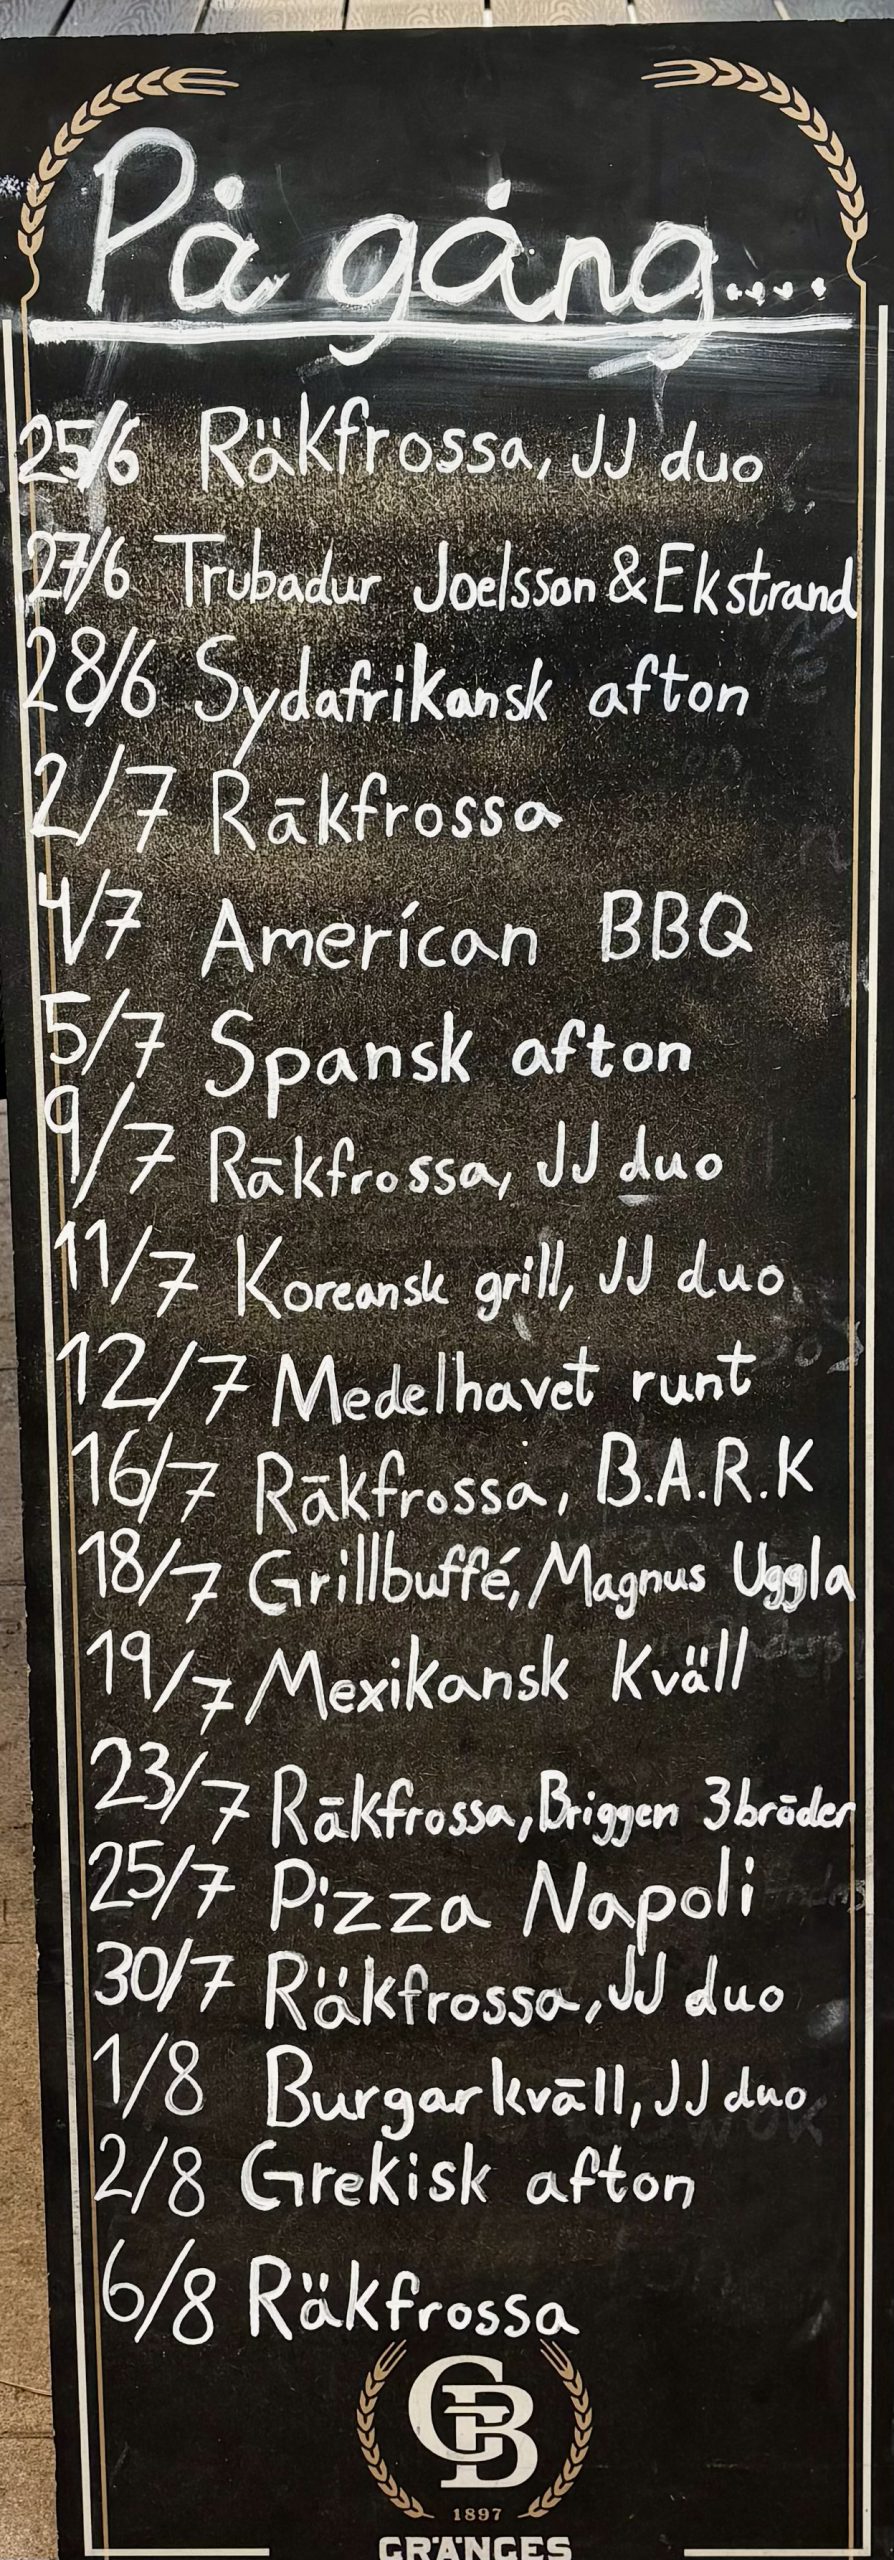 På gång....
25/6 Räkfrossa, JJ duo
27/6 Trubadur Joelsson & Ekstrand
28/6 Sydafrikansk afton
2/7 Räkfrossa
4/7 American BBQ
5/7 Spansk afton
9/7 Räkfrossa, JJ duo
11/7 Koreansk grill, JJ duo
12/7 Medelhavet runt
16/7 Räkfrossa, B.A.R.K
18/7 Grillbuffé, Magnus Uggla
19/7 Mexikansk Kväll
23/7 Räkfrossa, Briggen 3bröder
25/7 Pizza Napoli
30/7 Räkfrossa, JJ duo
1/8 Burgarkväll, JJ duo
2/8 Grekisk afton
6/8 Räkfrossa
GB
1897
GRÄNGES